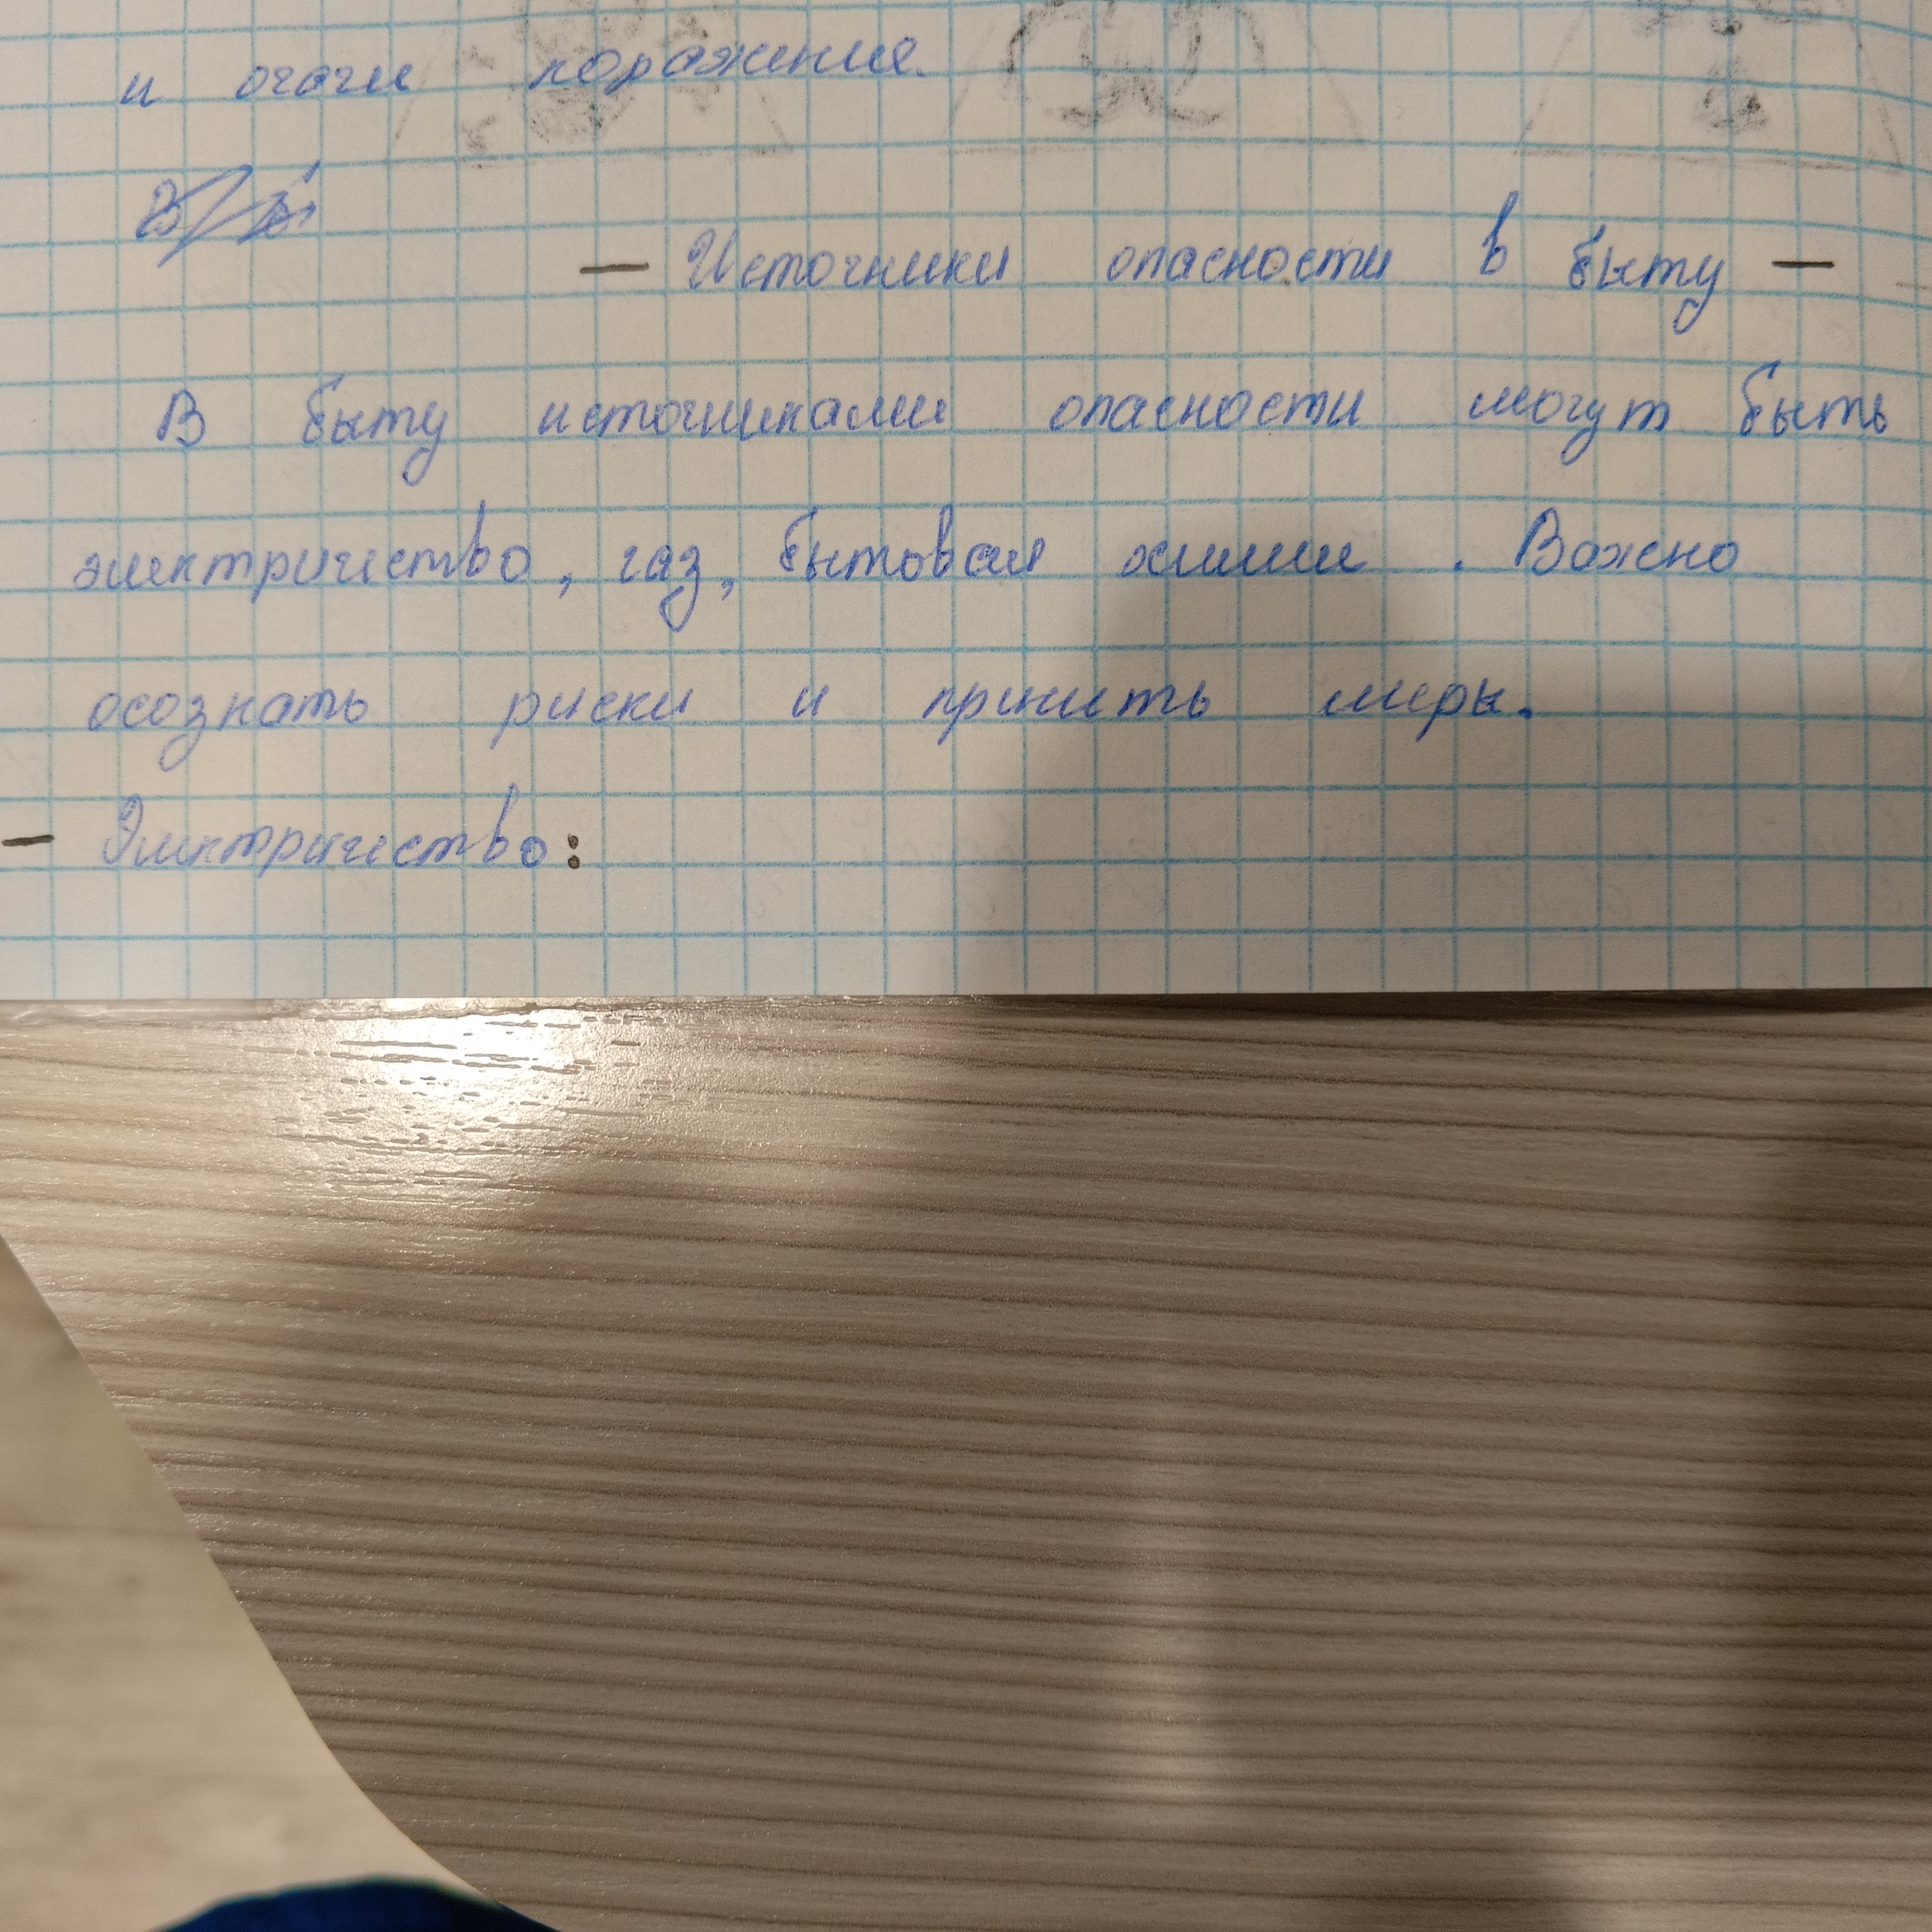 и очаги поражения.
— Источники опасности в быту —
В быту источниками опасности могут быть
электричество, газ, бытовая химия. Важно
осознать риски и принять меры.
— Электричество: